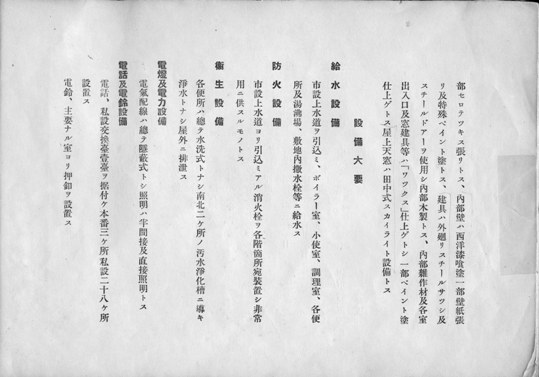 部セロラヅキス張リトス、內部壁ハ西洋漆喰塗一部壁紙張
リ及特殊ペイント塗トス、建具ハ外廻リスチールサツシ及
スチールドアーヲ使用シ內部木製トス、內部雜作材及各室
出入口及窓建具等ハ「ワツクス」仕上ゲトシ一部ペイント塗
仕上ゲトス屋上天窓ハ田中式スカイライト設備トス
設備大要
給水設備
市設上水道ヲ引込ミ、ボイラー室、小使室、調理室、各便
所及湯沸場、敷地內撒水栓等ニ給水ス
防火設備
市設上水道ヨリ引込ミアル消火栓ヲ各階箇所宛裝置シ非常
用ニ供スルモノトス
衞生設備
各便所ハ總テ水洗式トナシ南北二ケ所ノ汚水淨化槽ニ導キ
淨水トナシ屋外ニ排泄ス
電燈及電力設備
電氣配線ハ總テ隱蔽式トシ照明ハ半間接及直接照明トス
電話及電鈴設備
電話、私設交換臺壹臺ヲ据付ケ本番三ケ所私設二十八ケ所
設置ス
電鈴、主要ナル室ヨリ押釦ヲ設置ス